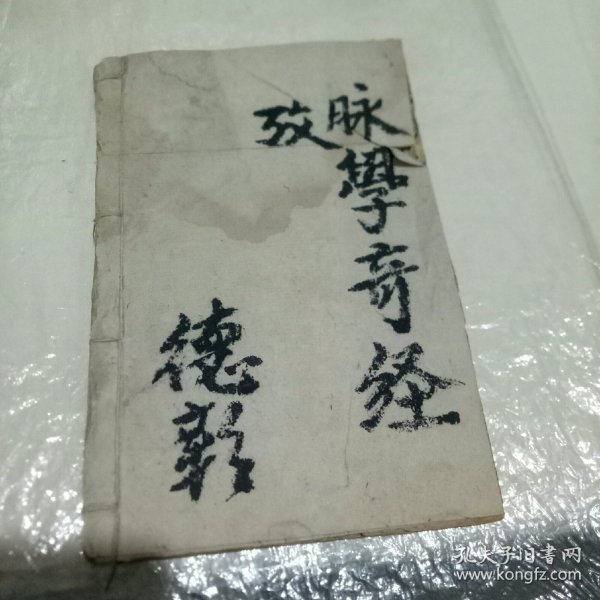 脉學奇经
攷
德彰
孔夫子旧书网
www.kongfz.com